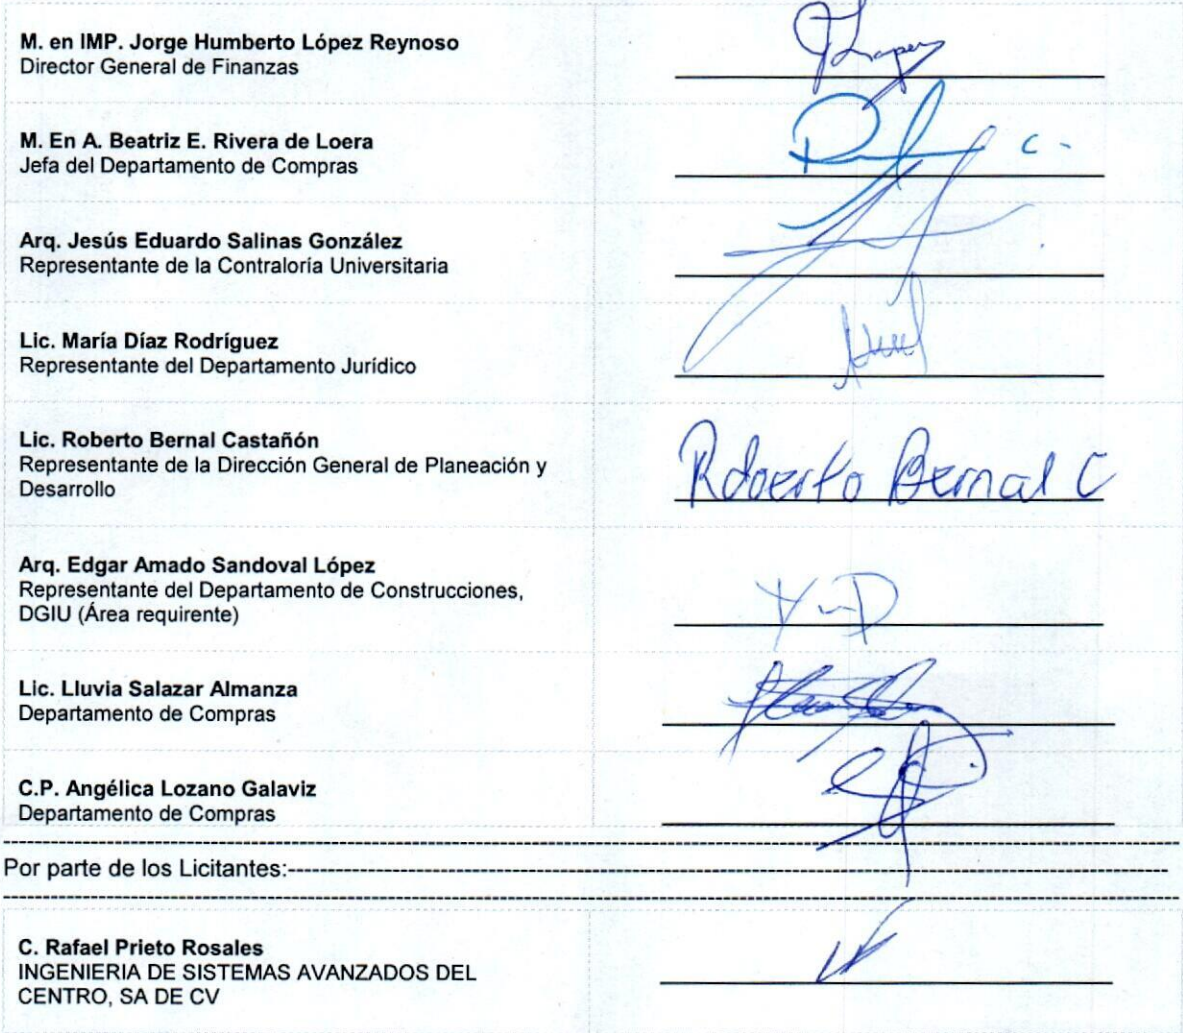 M. en IMP. Jorge Humberto López Reynoso
Director General de Finanzas
M. En A. Beatriz E. Rivera de Loera
Jefa del Departamento de Compras
Arq. Jesús Eduardo Salinas González
Representante de la Contraloría Universitaria
Lic. María Díaz Rodríguez
Representante del Departamento Jurídico
Lic. Roberto Bernal Castañón
Representante de la Dirección General de Planeación y
Desarrollo
Roberto Bernal C
Arq. Edgar Amado Sandoval López
Representante del Departamento de Construcciones,
DGIU (Área requirente)
Lic. Lluvia Salazar Almanza
Departamento de Compras
C.P. Angélica Lozano Galaviz
Departamento de Compras
Por parte de los Licitantes:
C. Rafael Prieto Rosales
INGENIERIA DE SISTEMAS AVANZADOS DEL
CENTRO, SA DE CV